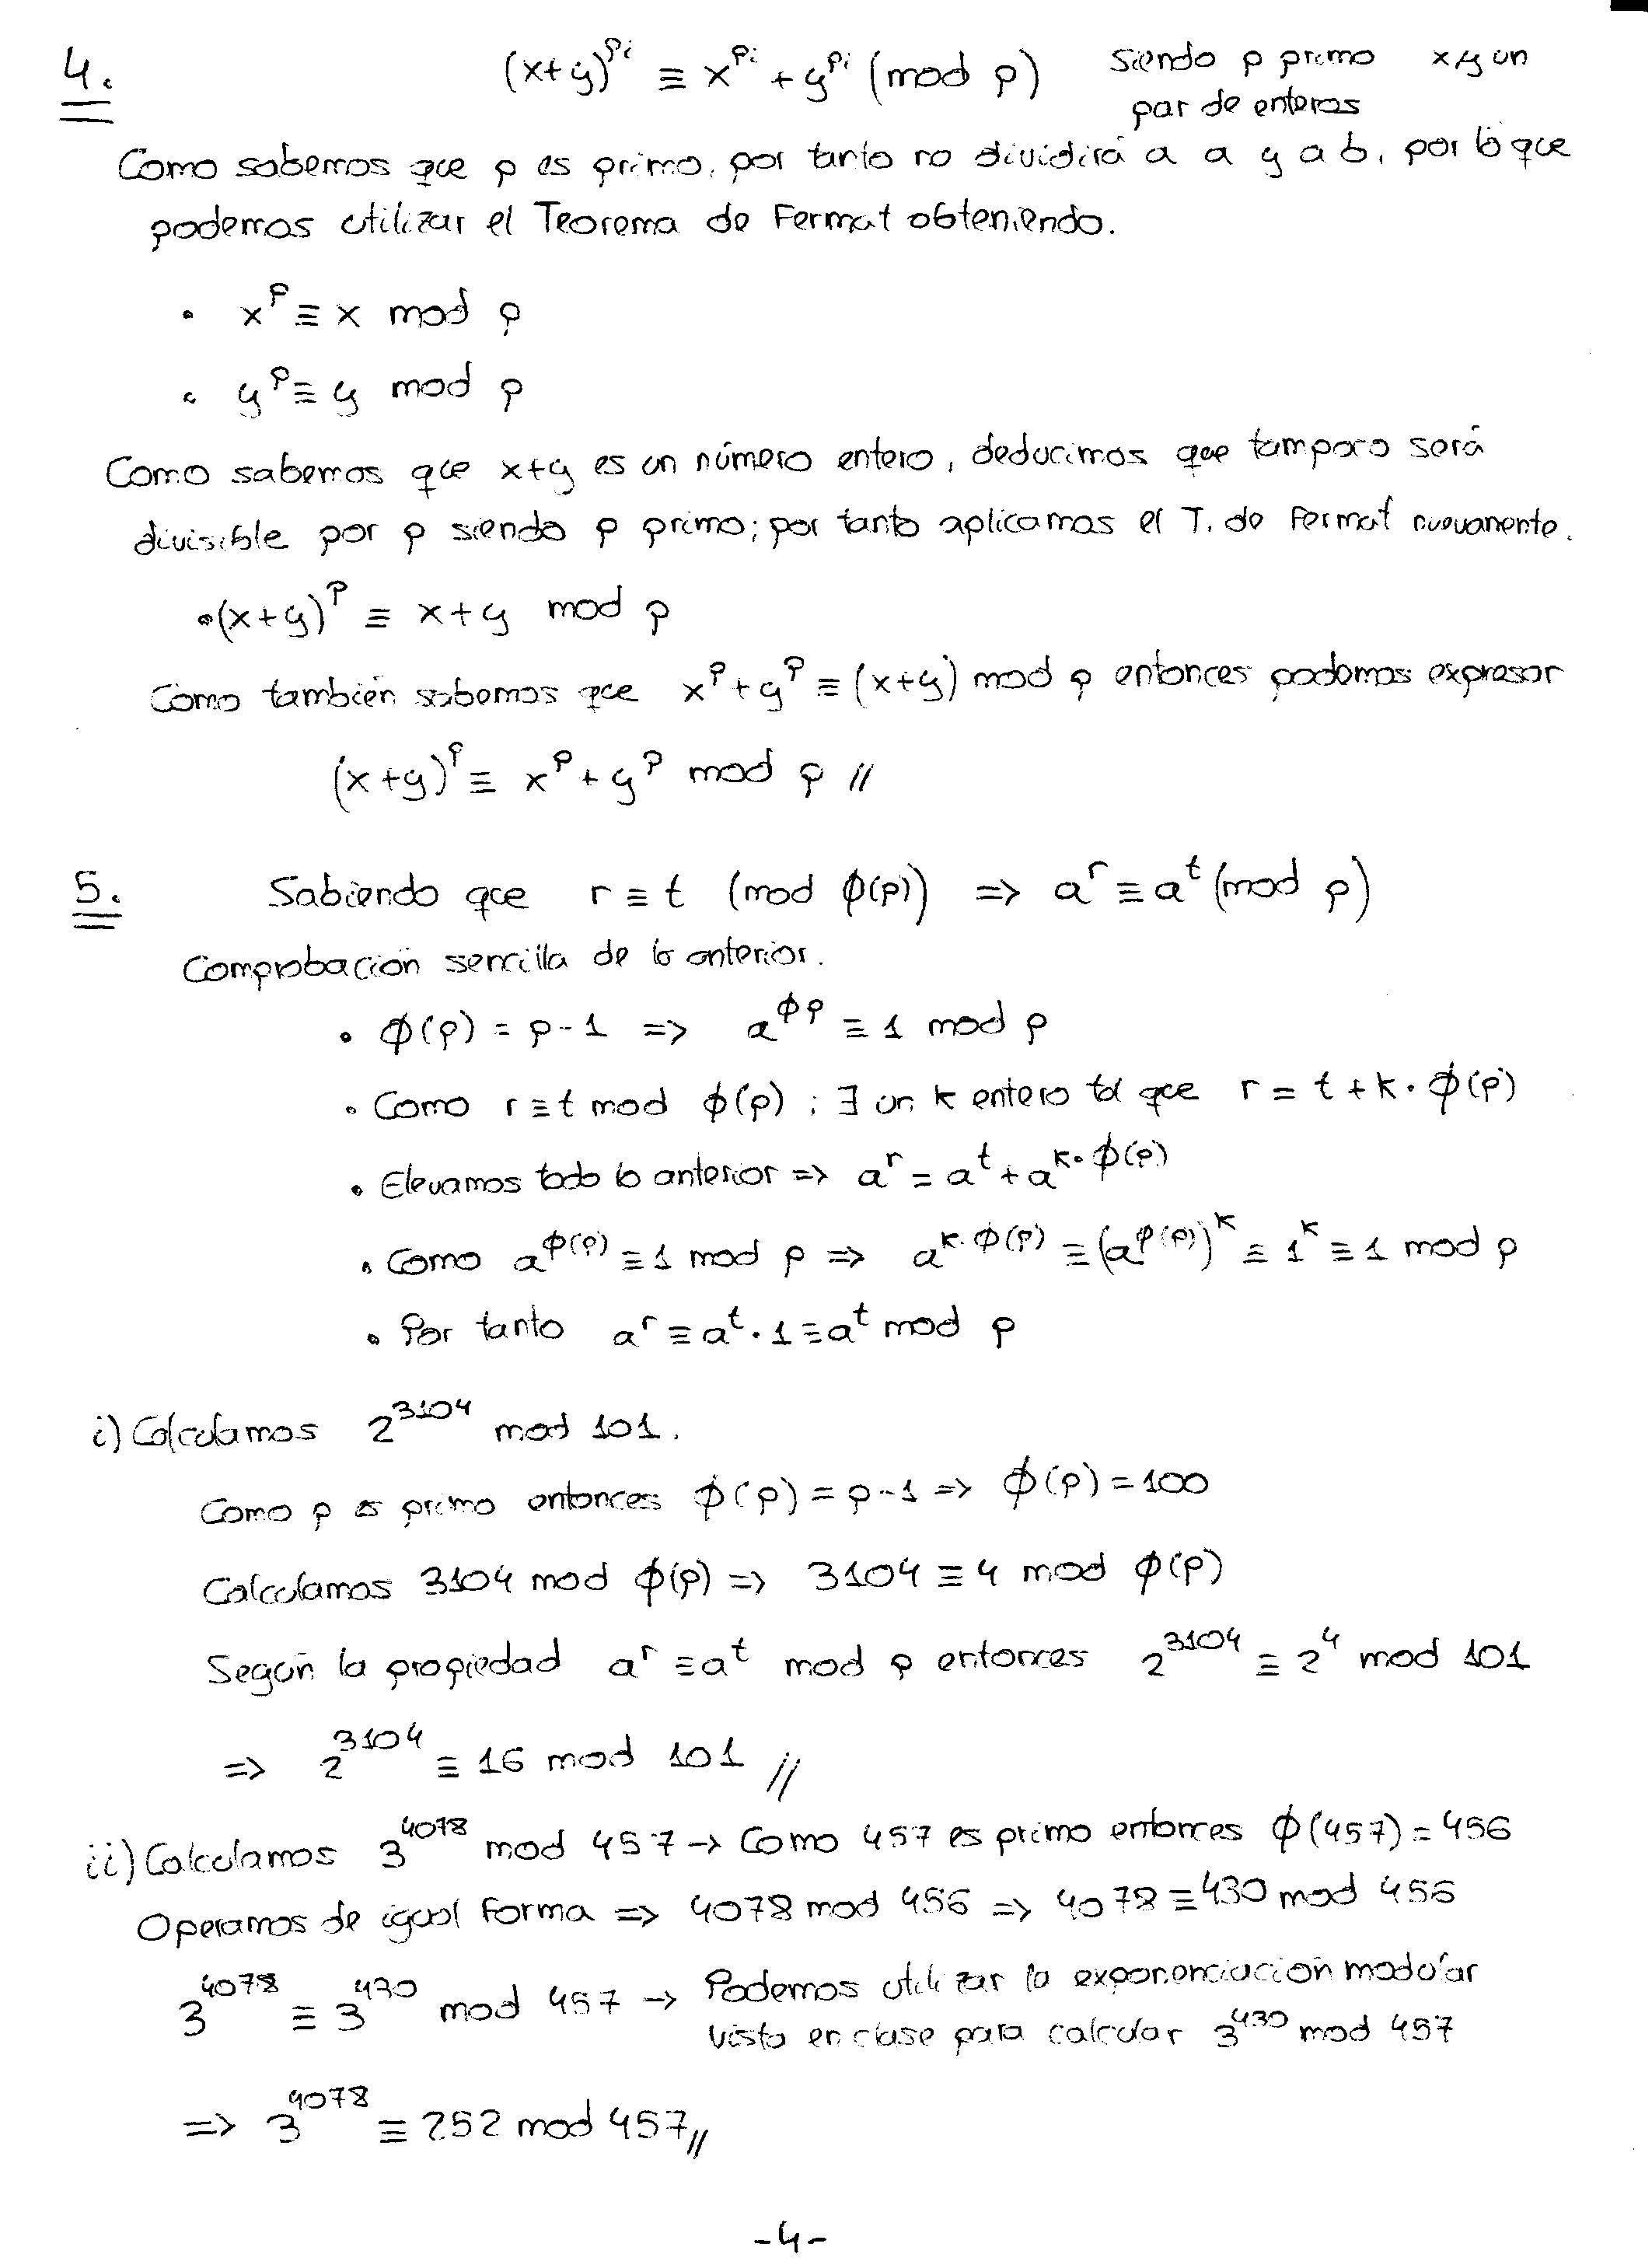 4. (x+y)^pi ≡ x^pi + y^pi (mod p) Siendo p primo x,y un
par de enteros
Como sabemos que p es primo, por tanto no dividirá a a y a b, por lo que
podemos utilizar el Teorema de Fermat obteniendo.
• x^p ≡ x mod p
• y^p ≡ y mod p
Como sabemos que x+y es un número entero, deducimos que tampoco será
divisible por p siendo p primo; por tanto aplicamos el T. de Fermat nuevamente.
• (x+y)^p ≡ x+y mod p
Como también sabemos que x^p + y^p ≡ (x+y) mod p entonces podemos expresar
(x+y)^p ≡ x^p + y^p mod p //
5. Sabiendo que r ≡ t (mod ϕ(p)) => a^r ≡ a^t (mod p)
Comprobación sencilla de lo anterior.
• ϕ(p) = p-1 => a^ϕp ≡ 1 mod p
• Como r ≡ t mod ϕ(p) ; ∃ un k entero tal que r = t + k · ϕ(p)
• Elevamos todo lo anterior => a^r = a^t + a^k·ϕ(p)
• Como a^ϕ(p) ≡ 1 mod p => a^k·ϕ(p) ≡ (a^ϕ(p))^k ≡ 1^k ≡ 1 mod p
• Por tanto a^r ≡ a^t · 1 ≡ a^t mod p
i) Calculamos 2^3104 mod 101.
Como p es primo entonces ϕ(p) = p-1 => ϕ(p) = 100
Calculamos 3104 mod ϕ(p) => 3104 ≡ 4 mod ϕ(p)
Según la propiedad a^r ≡ a^t mod p entonces 2^3104 ≡ 2^4 mod 101
=> 2^3104 ≡ 16 mod 101 //
ii) Calculamos 3^4078 mod 457 → Como 457 es primo entonces ϕ(457) = 456
Operamos de igual forma => 4078 mod 456 => 4078 ≡ 430 mod 456
3^4078 ≡ 3^430 mod 457 → Podemos utilizar la exponenciación modular
visto en clase para calcular 3^430 mod 457
=> 3^4078 ≡ 252 mod 457 //
-4-